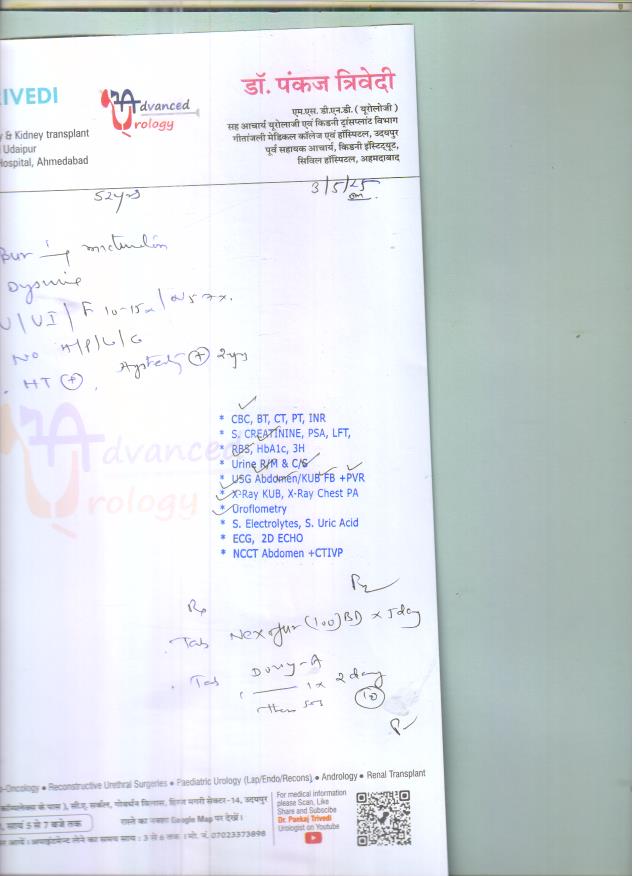 RIVEDI
Advanced Urology
डॉ. पंकज त्रिवेदी
एम.एस. डी.एन.बी. ( यूरोलोजी )
सह आचार्य यूरोलाजी एवं किडनी ट्रांसप्लांट विभाग
गीतांजली मेडिकल कॉलेज एवं हॉस्पिटल, उदयपुर
पूर्व सहायक आचार्य, किडनी इंस्टिट्युट,
सिविल हॉस्पिटल, अहमदाबाद
y & Kidney transplant
Udaipur
Hospital, Ahmedabad
52yrs
3/5/25
Bur micturition
Dysuria
U/UI/ F 10-15x/ N 5-7x.
No H/P/L/G
HT (+) . (+) 2yrs
* CBC, BT, CT, PT, INR
* S. CREATININE, PSA, LFT,
RBS, HbA1c, 3H
* Urine R/M & C/S
* USG Abdomen/KUB FB +PVR
* X-Ray KUB, X-Ray Chest PA
* Uroflometry
* S. Electrolytes, S. Uric Acid
* ECG, 2D ECHO
* NCCT Abdomen +CTIVP
Advanced
Urology
Rx
Rx
. Tab (100) BD x 5 day
. Tab 1x 2 day
then sos (10)
o-Oncology • Reconstructive Urethral Surgeries • Paediatric Urology (Lap/Endo/Recons) • Andrology • Renal Transplant
कॉम्पलेक्स के पास ), सी.ए. सर्कल, गोवर्धन विलास, हिरण मगरी सेक्टर-14, उदयपुर
, सायं 5 से 7 बजे तक
रास्ते का नक्शा Google Map पर देखें।
कर आये। अपाइंटमेन्ट लेने का समय सायं : 3 से 6 तक । मो. नं. 07023373898
For medical information
please Scan, Like
Share and Subscibe
Dr. Pankaj Trivedi
Urologist on Youtube